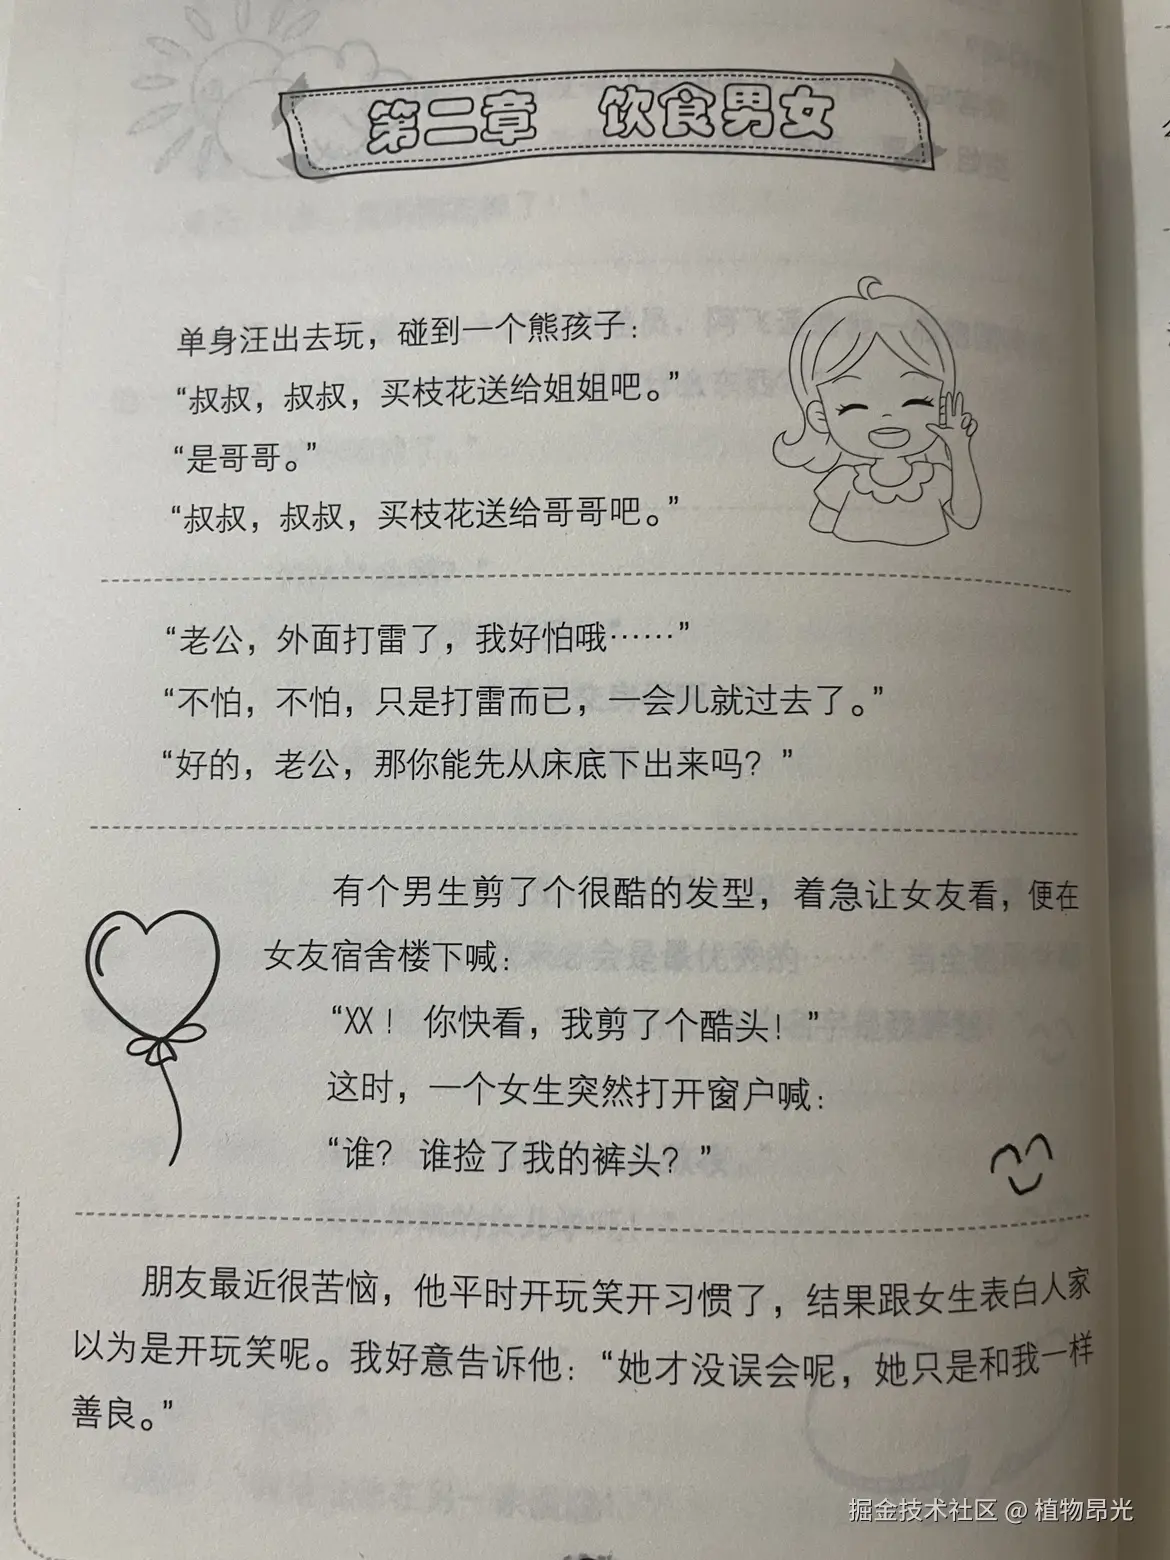 第二章 饮食男女
单身汪出去玩，碰到一个熊孩子：
“叔叔，叔叔，买枝花送给姐姐吧。”
“是哥哥。”
“叔叔，叔叔，买枝花送给哥哥吧。”
“老公，外面打雷了，我好怕哦……”
“不怕，不怕，只是打雷而已，一会儿就过去了。”
“好的，老公，那你能先从床底下出来吗？”
有个男生剪了个很酷的发型，着急让女友看，便在
女友宿舍楼下喊：
“XX！ 你快看，我剪了个酷头！”
这时，一个女生突然打开窗户喊：
“谁？ 谁捡了我的裤头？”
朋友最近很苦恼，他平时开玩笑开习惯了，结果跟女生表白人家
以为是开玩笑呢。我好意告诉他：“她才没误会呢，她只是和我一样
善良。”
掘金技术社区 @ 植物昂光